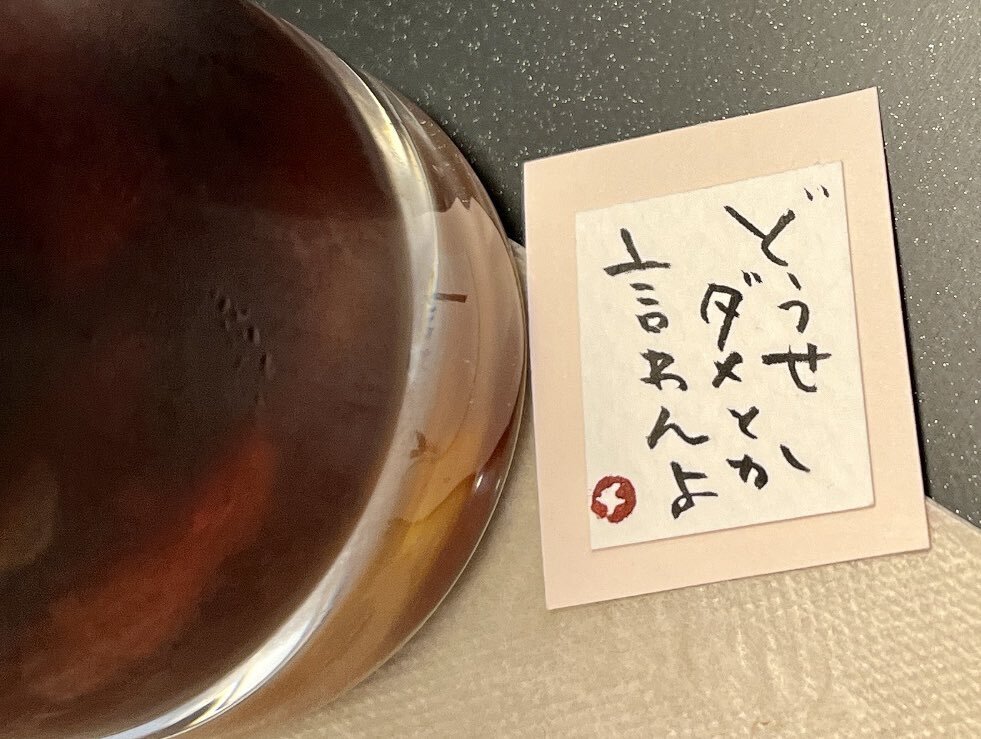 どうせ
ダメとか
言わんよ